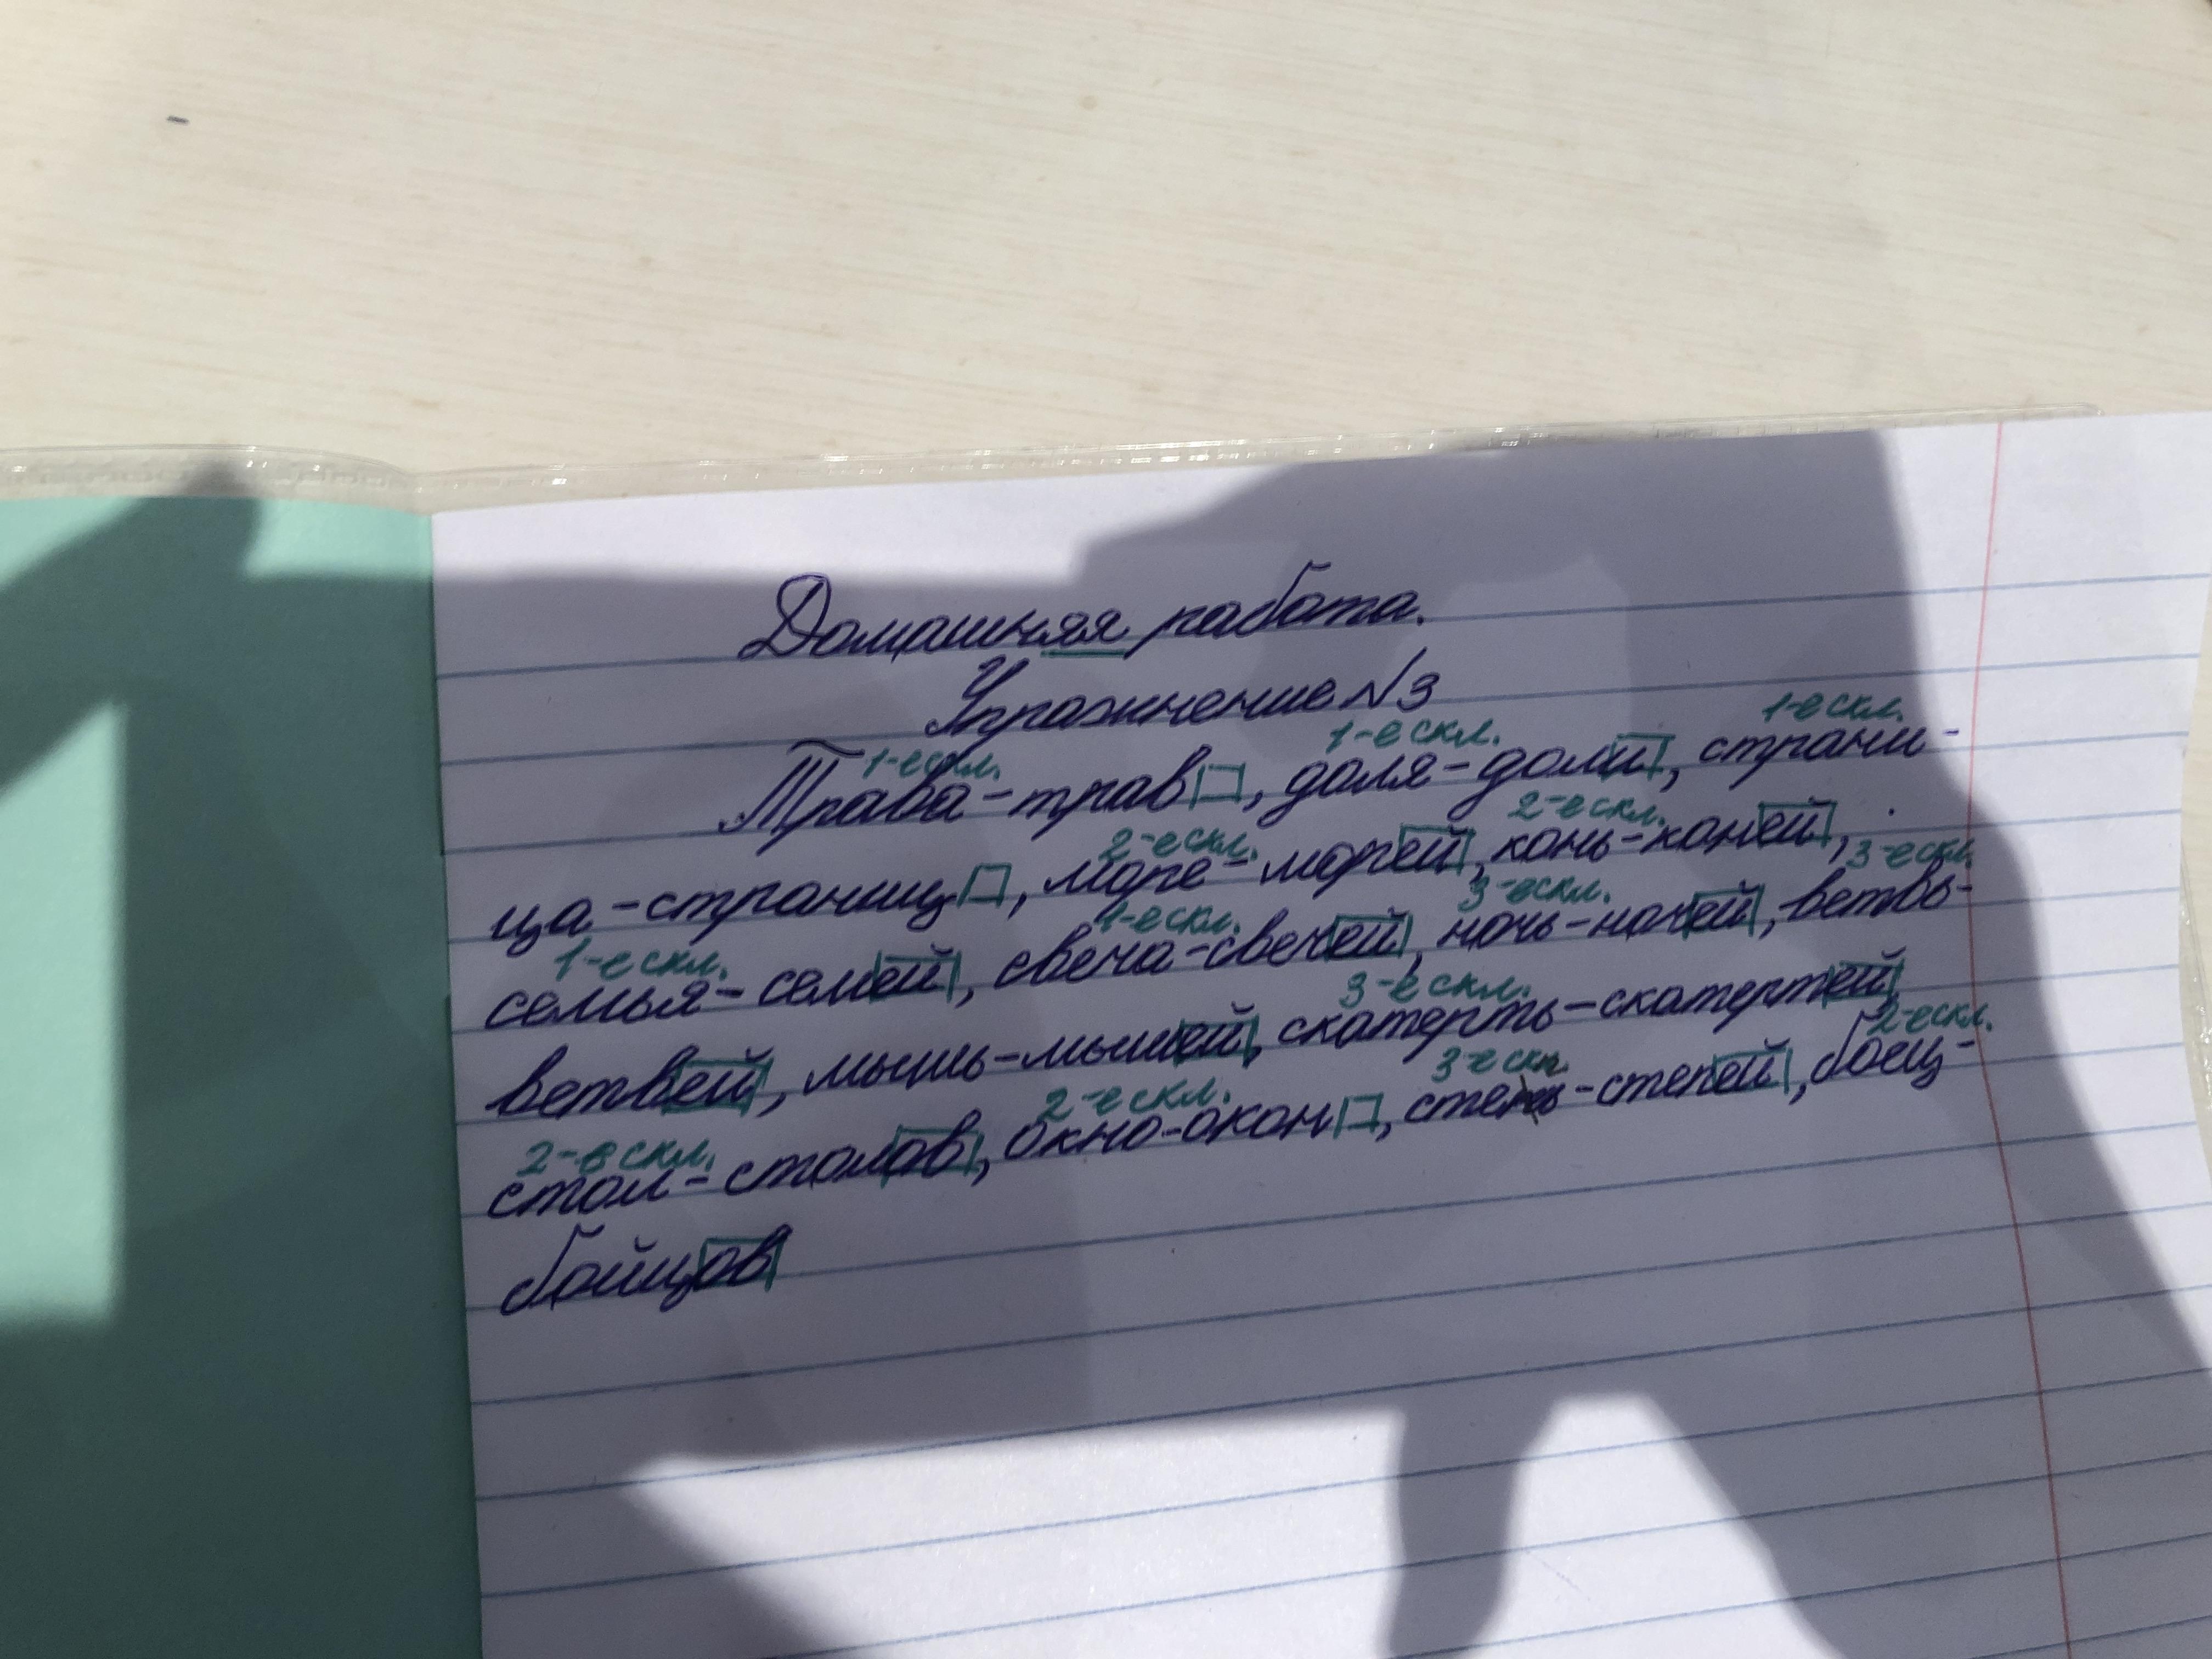 Домашняя работа.
Упражнение №3
1-е скл. 1-е скл. 1-е скл.
Трава-трав, доля-доли, страни-
2-е скл. 2-е скл.
ца-страниц, море-морей, конь-коней,
1-е скл. 1-е скл. 3-е скл. 3-е скл.
семья-семей, свеча-свечей, ночь-ночей, ветвь-
3-е скл.
ветвей, мышь-мышей, скатерть-скатертей
2-е скл. 2-е скл. 3-е скл. 2-е скл.
стол-столов, окно-окон, степь-степей, боец-
бойцов